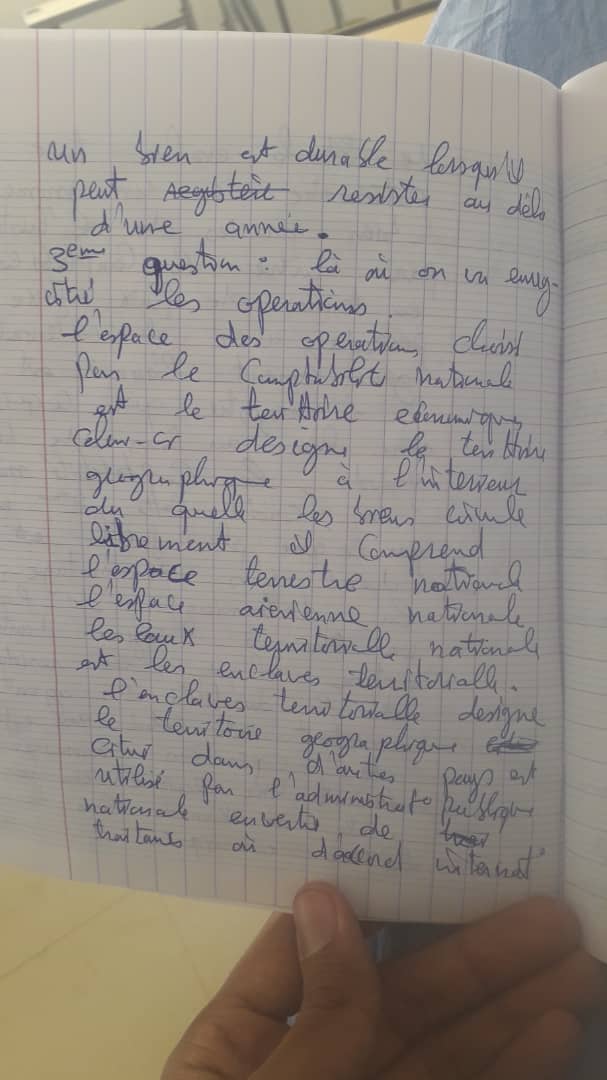 un bien est durable lorsqu'il
peut resister au délà
d'une année.
3em question : là où on va enreg-
istré les operations
l'espace des operations choisi
par le Comptabilité nationale
est le territoire economique,
celui-ci designe le territoire
geographique à l'interieur
du quelle les biens circule
librement il Comprend
l'espace terrestre national
l'espace aierienne nationale
les eaux territorialle nationale
est les enclaves territorialle.
l'enclaves territorialle designe
le territoire geographique
citué dans d'autres pays est
utilisé par l'administrat° publique
nationale envertu de
traitans où d'adcend internat°